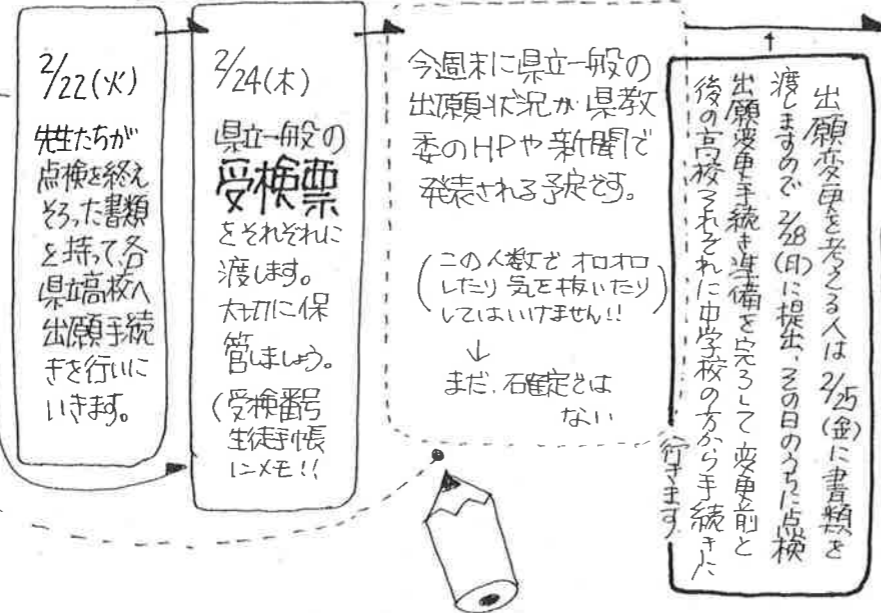 2/22(火)
先生たちが
点検を終え
そろった書類
を持って、各
県立高校へ
出願手続
きを行いに
いきます。
2/24(木)
県立一般の
受検票
をそれぞれに
渡します。
大切に保
管しましょう。
(受検番号
生徒手帳
にメモ!!
今週末に県立一般の
出願状況が県教
委のHPや新聞で
発表される予定です。
(この人数でオロオロ
したり気を抜いたり
してはいけません!!)
↓
まだ、確定では
ない
出願変更を考える人は2/25(金)に書類を
渡しますので2/28(月)に提出、その日のうちに点検
出願変更手続き準備を完了して変更前と
後の高校それぞれに中学校の方から手続きに
行きます